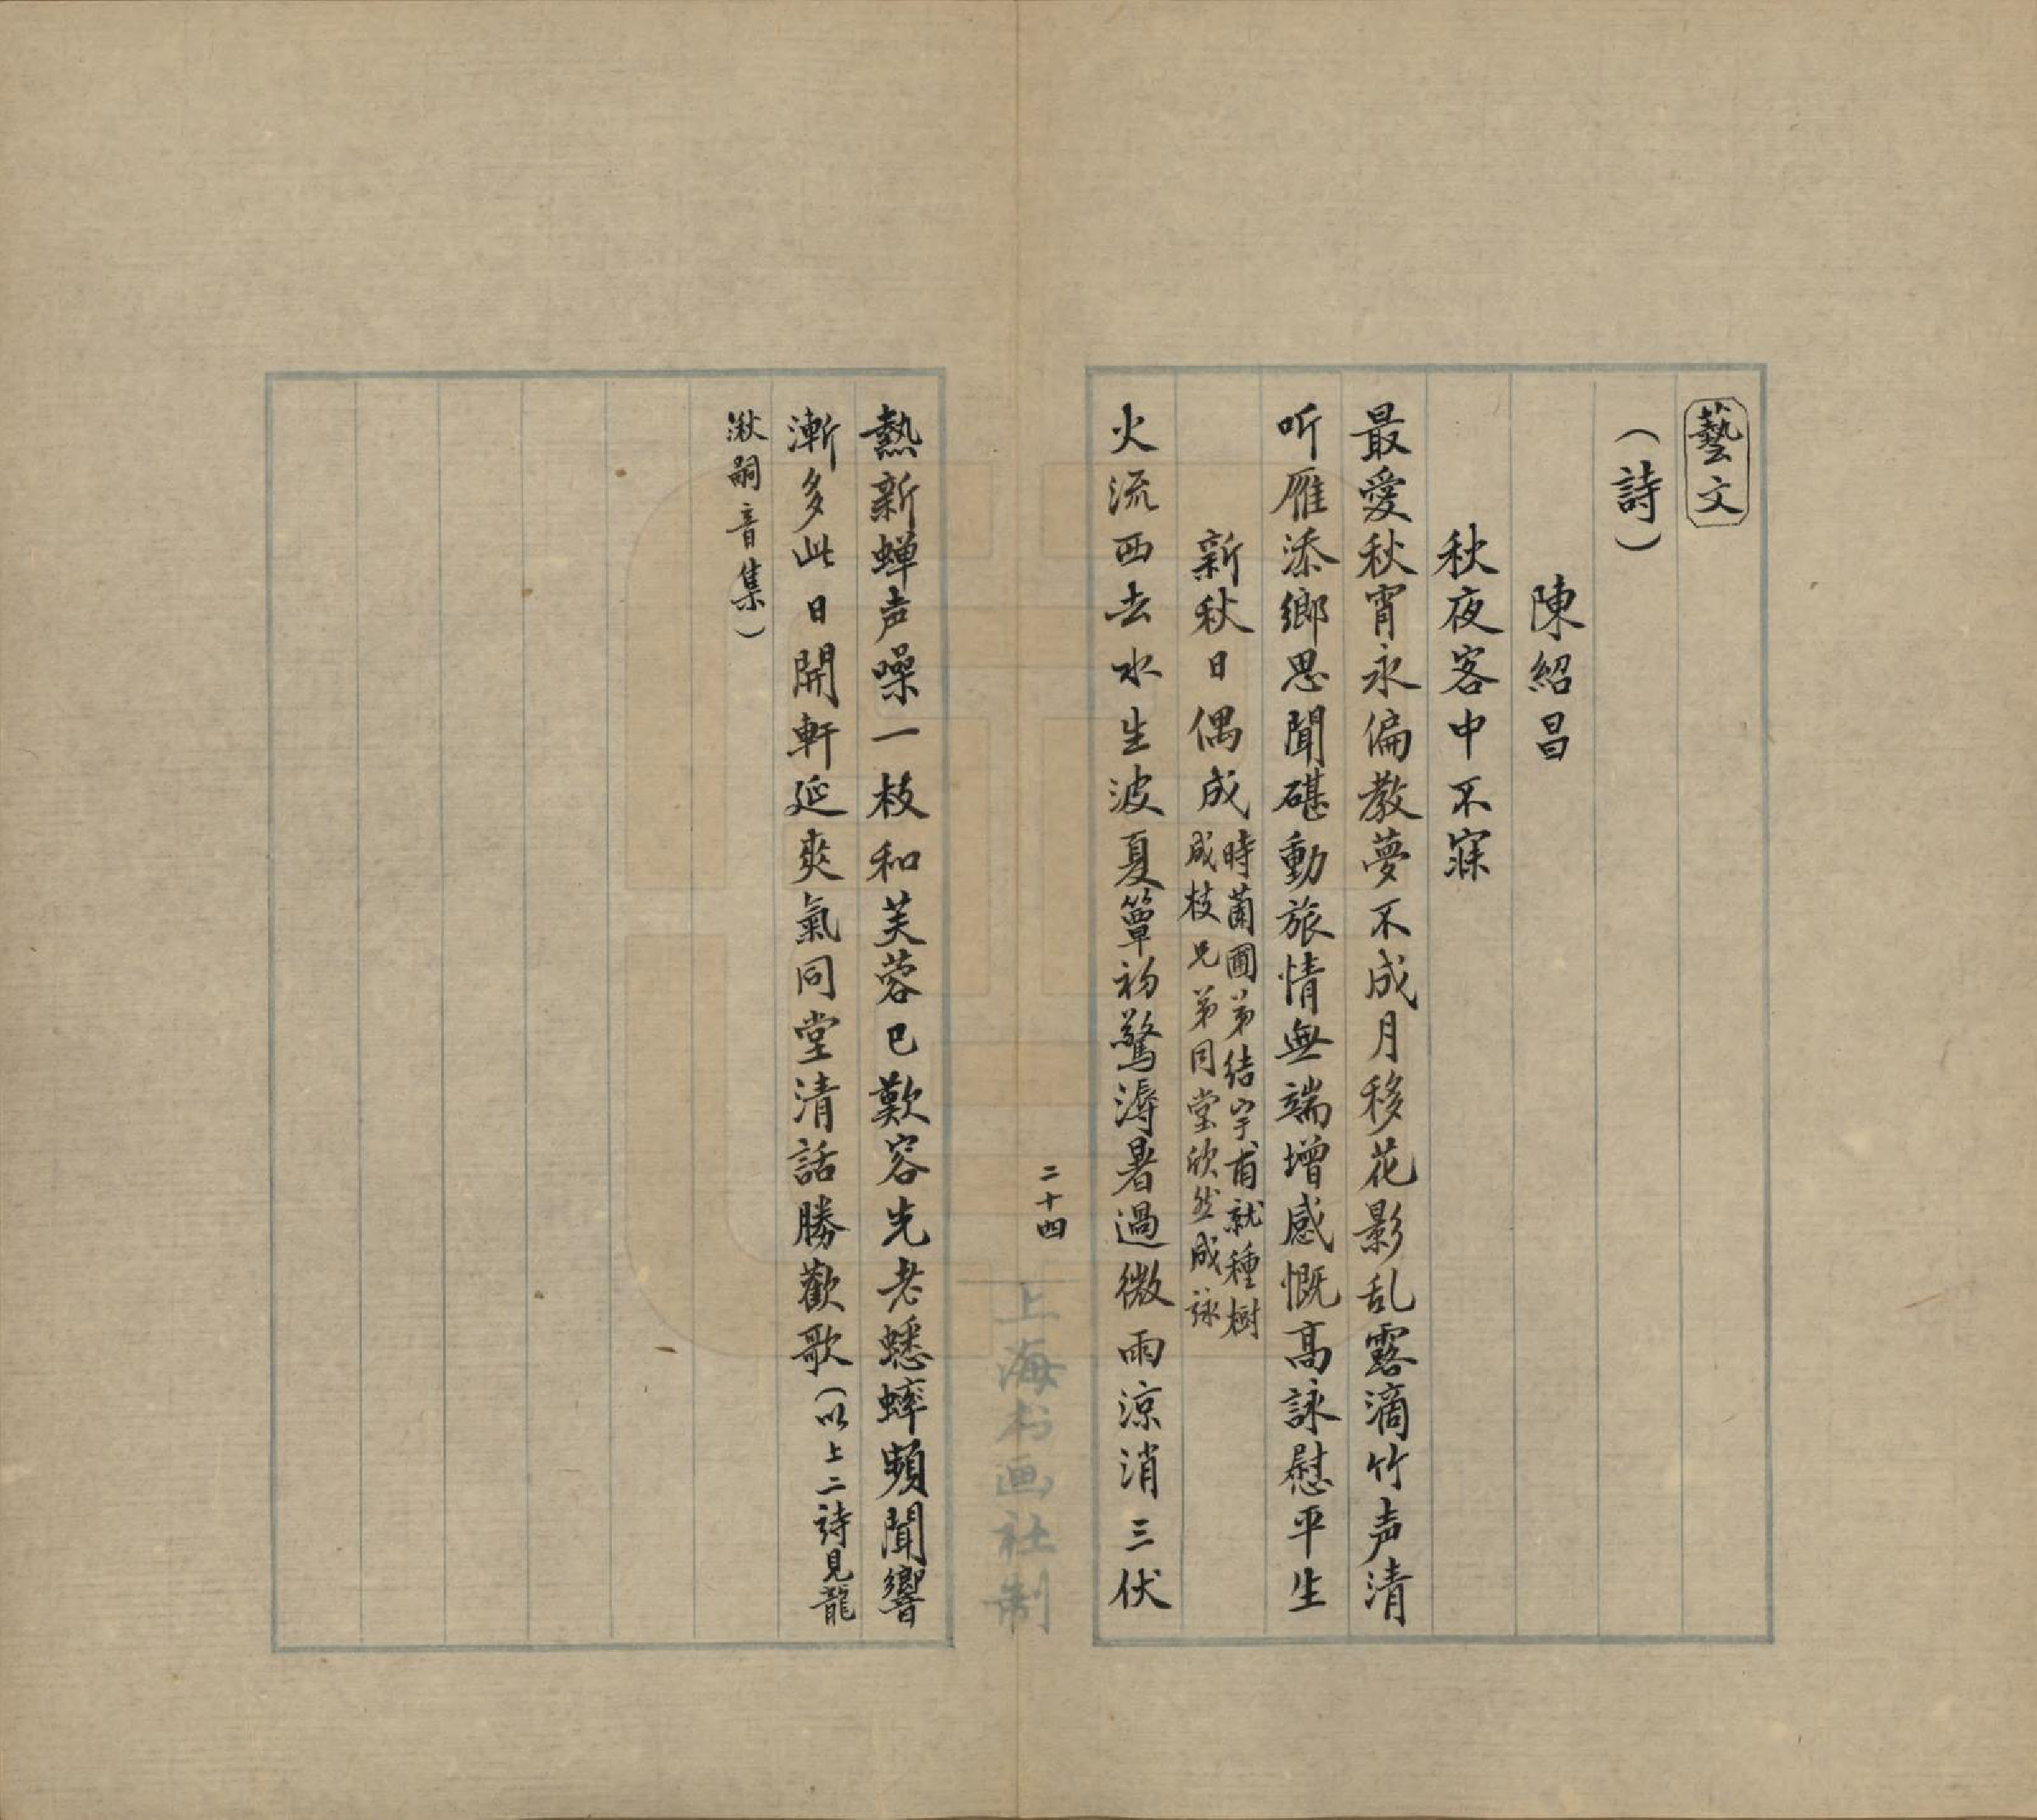 藝文
（詩）
陳紹昌
秋夜客中不寐
最愛秋宵永偏教夢不成月移花影乱露滴竹声清
听雁添鄉思聞碪動旅情無端增感慨高詠慰平生
新秋日偶成時蘭圃弟結宇甫就種樹
成枝兄弟同堂欣然成詠
火流西去水生波夏簟初驚溽暑過微雨涼消三伏
二十四
上海书画社制
熱新蝉声噪一枝和芙蓉已歎容先老蟋蟀頻聞響
漸多此日開軒延爽氣同堂清話勝歡歌（以上二詩見龍
湫嗣音集）